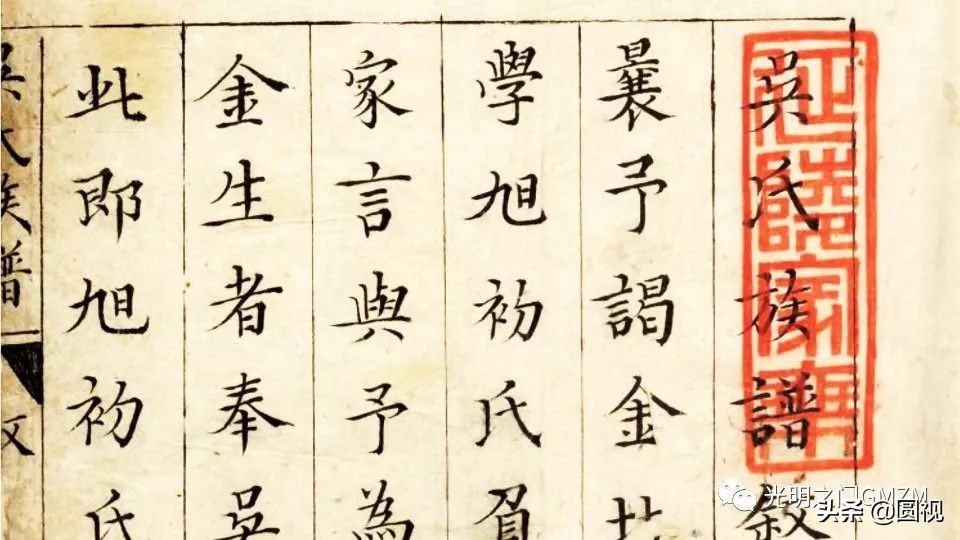 吳氏族譜敘
曩予謁金
學旭初氏
家言與予為
金生者奉吳
此即旭初氏
吳氏族譜
光明之门GMZM
头条 @圆视